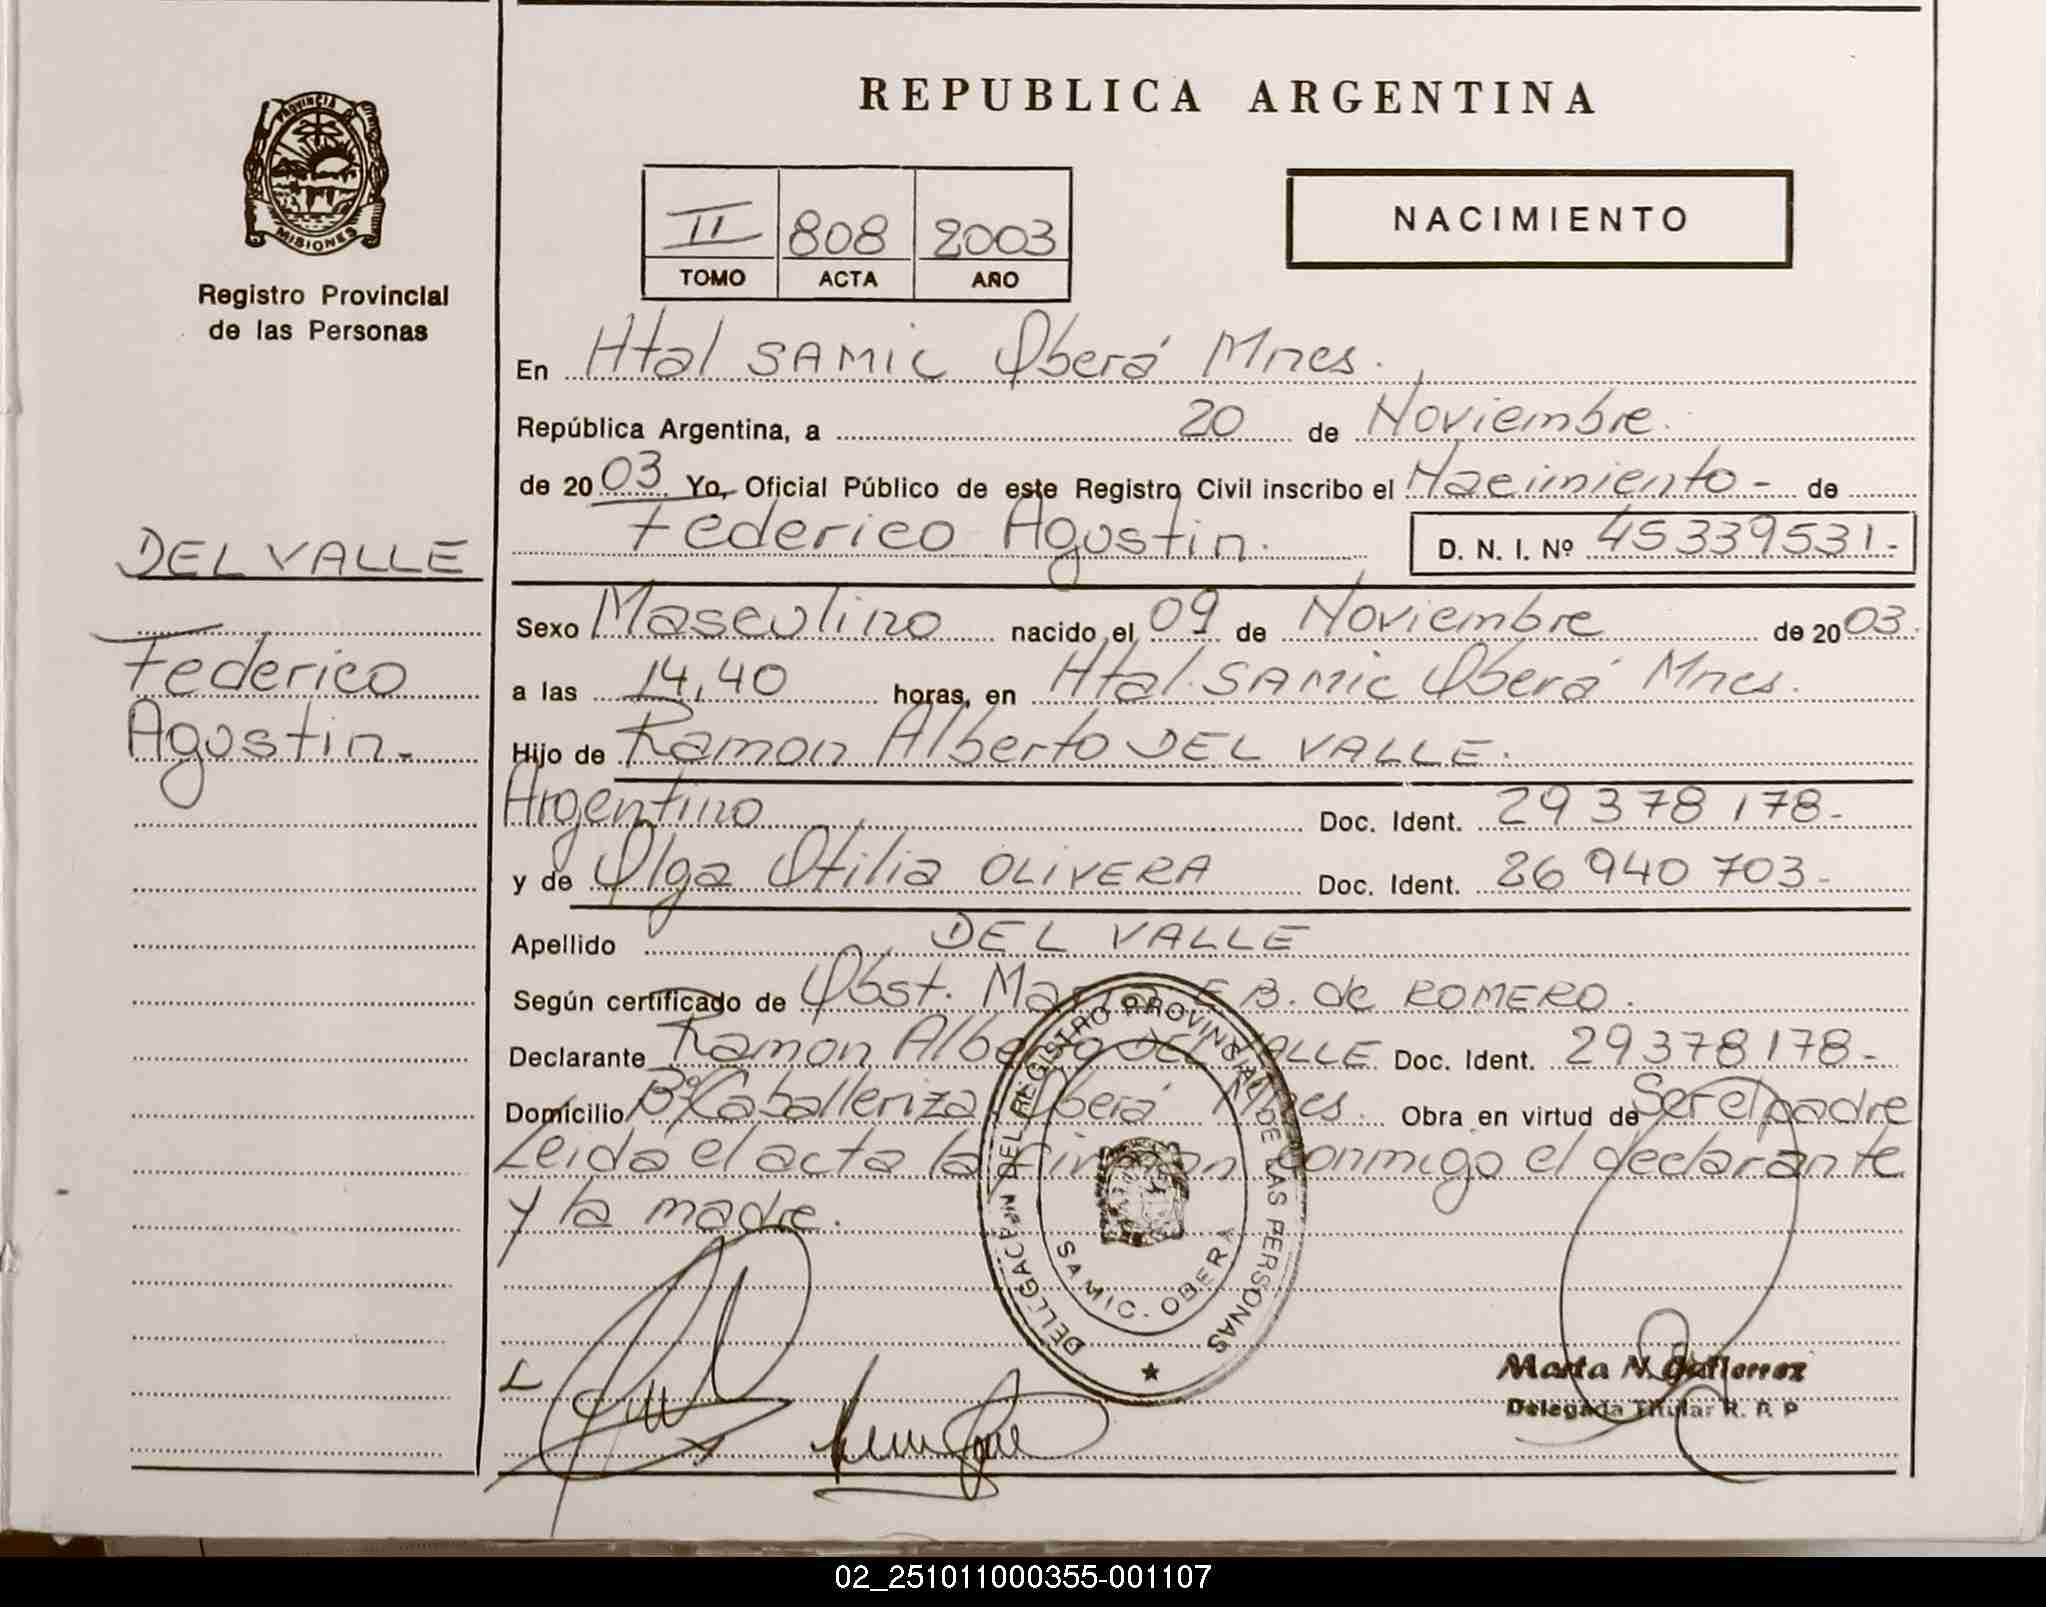 PROVINCIA DE
MISIONES
Registro Provincial
de las Personas
DEL VALLE
Federico
Agustin.
REPUBLICA ARGENTINA
II 808 2003
TOMO ACTA AÑO
NACIMIENTO
En Htal SAMIC Oberá Mnes.
República Argentina, a 20 de Noviembre.
de 2003 Yo, Oficial Público de este Registro Civil inscribo el Nacimiento - de
Federico Agustin. D. N. I. Nº 45339531.-
Sexo Masculino nacido el 09 de Noviembre de 2003.
a las 14,40 horas, en Htal. SAMIC Oberá Mnes.
Hijo de Ramon Alberto DEL VALLE.
Argentino Doc. Ident. 29378178-
y de Olga Otilia OLIVERA Doc. Ident. 26940703-
Apellido DEL VALLE
Según certificado de Obst. Maria E B. de ROMERO.
Declarante Ramon Alberto DEL VALLE Doc. Ident. 29378178-
Domicilio Bº Caballeriza Oberá Mnes. Obra en virtud de Ser el padre
Leida el acta la firman conmigo el declarante
y la madre.
DELEGACION DEL REGISTRO PROVINCIAL DE LAS PERSONAS
SAMIC. OBERA
Marta N. Gutierrez
Delegada Titular R. P. P
02_251011000355-001107